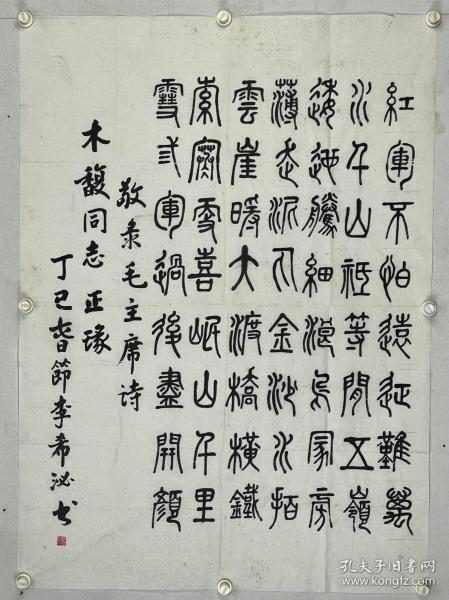 紅軍不怕遠征難萬
水千山祗等閒五嶺
逶迤騰細浪烏蒙旁
薄走泥丸金沙水拍
雲崖暖大渡橋橫鐵
索寒更喜岷山千里
雪弎軍過後盡開顏
敬录毛主席诗
木馥同志正瑑
丁巳春節李希泌书
孔夫子旧书网
www.kongfz.com